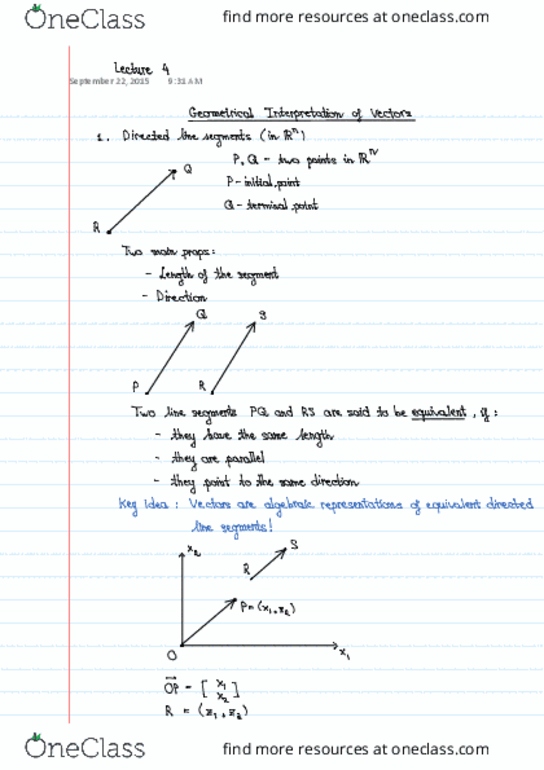 OneClass
find more resources at oneclass.com
Lecture 4
September 22, 2015 9:31 AM
Geometrical Interpretation of Vectors
1. Directed line segments (in ℝⁿ)
Q
P, Q - two points in ℝᴺ
P - initial point
Q - terminal point
R
Two main props:
- Length of the segment
- Direction
Q S
P R
Two line segments PQ and RS are said to be equivalent, if:
- they have the same length
- they are parallel
- they point to the same direction
Key Idea: Vectors are algebraic representations of equivalent directed
line segments!
x₂ S
R
P=(x₁,x₂)
O x₁
OP = [x₁
x₂]
R = (z₁, z₂)
OneClass
find more resources at oneclass.com